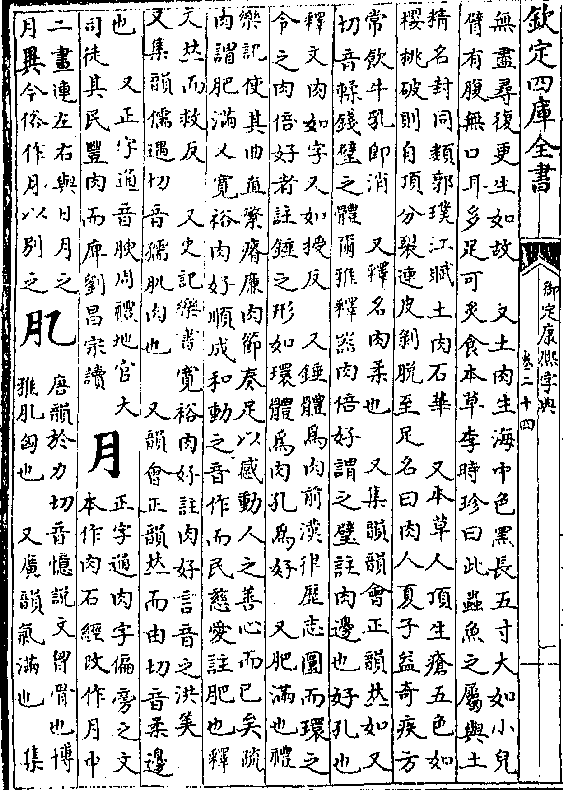 欽定四庫全書
御定康熙字典
卷二十四
二
無盡尋復更生如故 又土肉生海中色黑長五寸大如小兒
臂有腹無口耳多足可炙食本草李時珍曰此蟲魚之屬與土
精名封同類郭璞江賦土肉石華 又本草人頂生瘡五色如
櫻桃破則自頂分裂連皮剝脫至足名曰肉人夏子益奇疾方
常飲牛乳即消 又釋名肉柔也 又集韻韻會正韻𠀤如又
切音輮錢璧之體爾雅釋器肉倍好謂之璧註肉邊也好孔也
釋文肉如字又如授反 又錘體為肉前漢律歷志圜而環之
令之肉倍好者註錘之形如環體為肉孔為好 又肥滿也禮
樂記使其曲直繁瘠廉肉節奏足以感動人之善心而已矣疏
肉謂肥滿又寬裕肉好順成和動之音作而民慈愛註肥也釋
文𠀤而救反 又史記樂書寬裕肉好註肉好言音之洪美
又集韻儒遇切音孺肌肉也 又韻會正韻𠀤而由切音柔邊
也 又正字通音腴周禮地官大
司徒其民豐肉而庳劉昌宗讀
月
正字通肉字偏旁之文
本作肉石經改作月中
二畫連左右與日月之
月異今俗作月以別之
肊
唐韻於力切音憶說文胷骨也博
雅肊匈也 又廣韻氣滿也 集